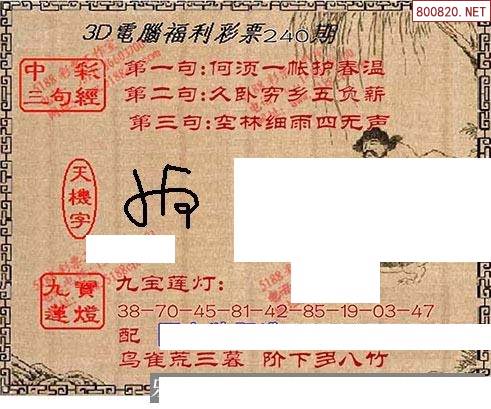 800820.NET
3D電腦福利彩票240期
中彩
三句經
第一句:何须一帐护春温
第二句:久卧穷乡五负薪
第三句:空林细雨四无声
天機字
九寶蓮燈
九宝莲灯:
38-70-45-81-42-85-19-03-47
配
鸟雀荒三暮 阶下多八竹